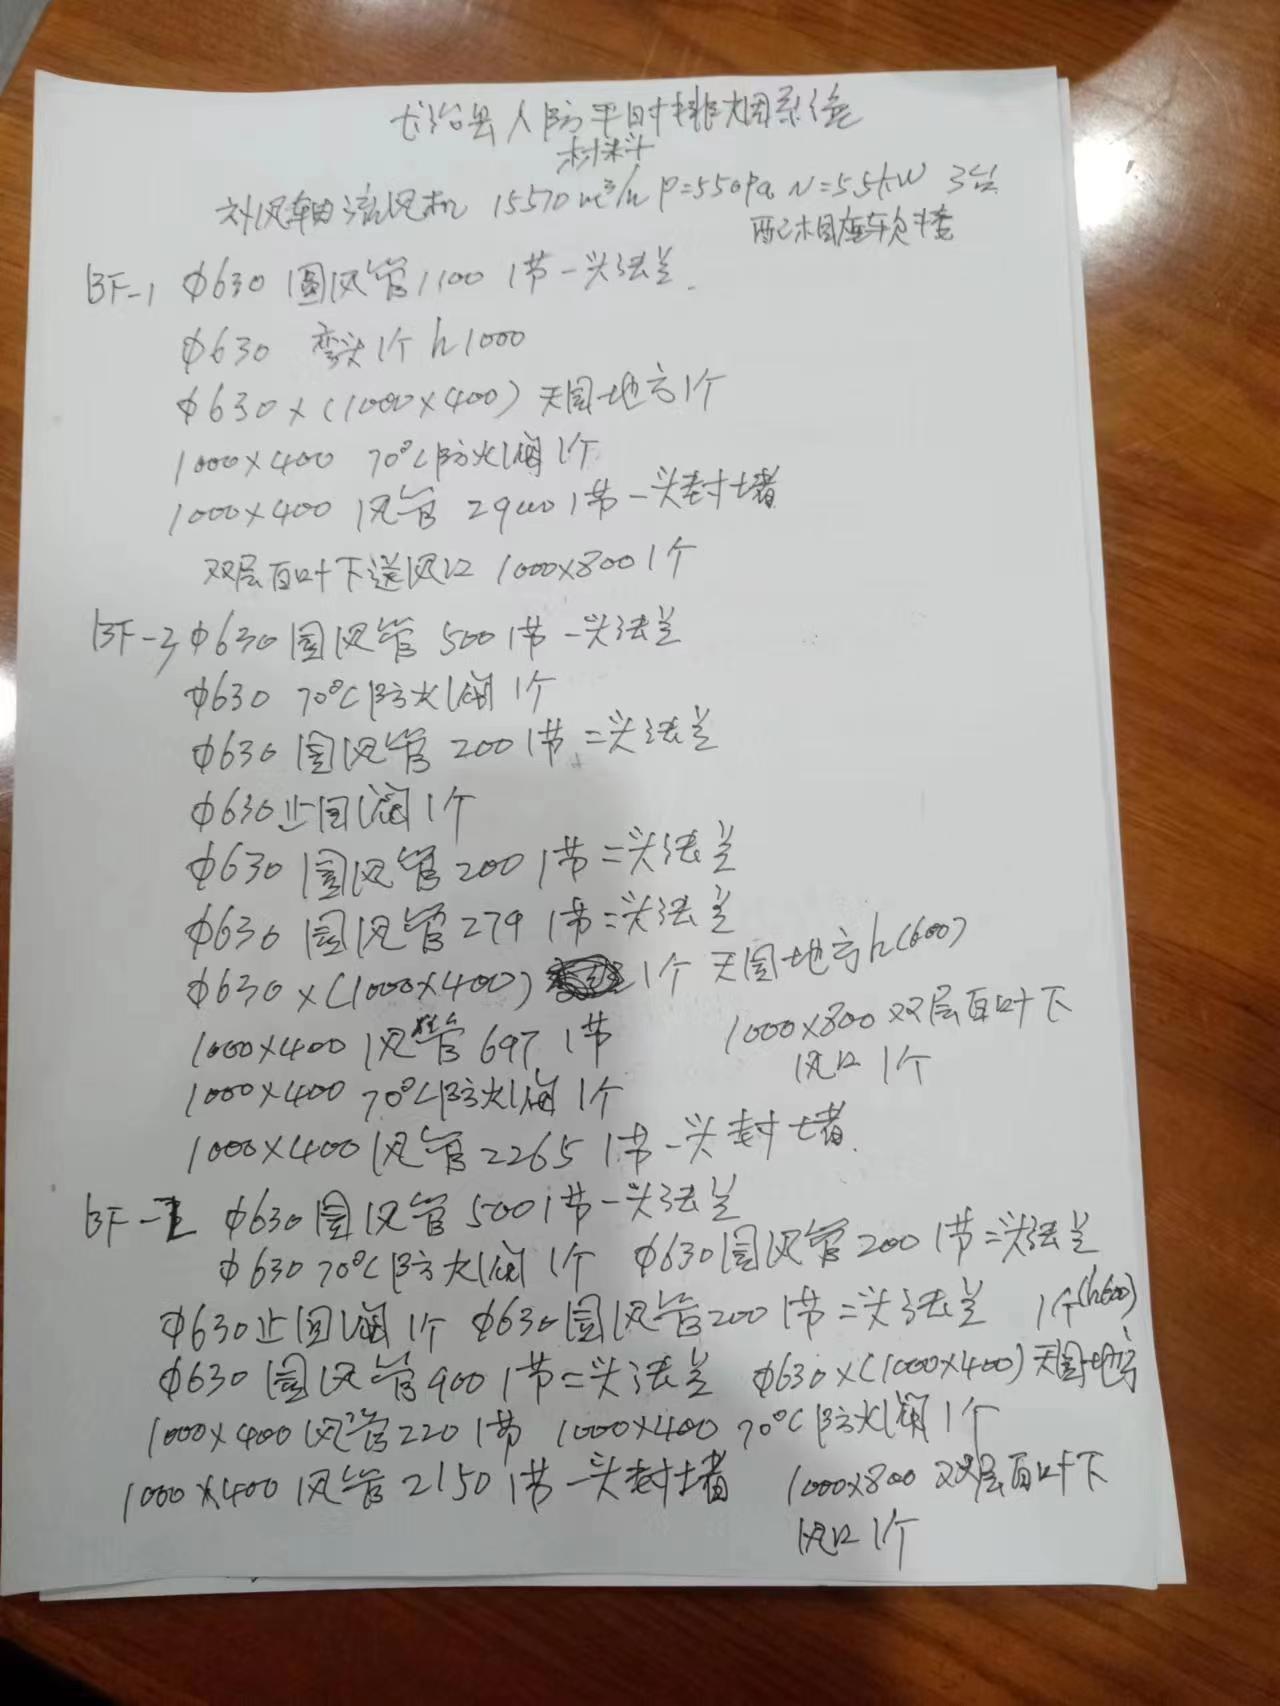 长治县人防平时排烟系统
材料
补风轴流风机 15570m³/h P=550Pa N=5.5kW 3台
配相应软接
BF-1 φ630 圆风管1100 1节一头法兰
φ630 弯头1个 h1000
φ630×(1000×400) 天圆地方1个
1000×400 70℃防火阀1个
1000×400 风管 2900 1节一头封堵
双层百叶下送风口 1000×800 1个
BF-3 φ630圆风管 500 1节一头法兰
φ630 70℃防火阀 1个
φ630 圆风管 200 1节二头法兰
φ630止回阀1个
φ630 圆风管 200 1节二头法兰
φ630 圆风管279 1节二头法兰
φ630×(1000×400) 1个 天圆地方h(600)
1000×400 风管 697 1节
1000×800 双层百叶下
风口 1个
1000×400 70℃防火阀 1个
1000×400风管2265 1节一头封堵
BF-2 φ630圆风管 500 1节一头法兰
φ630 70℃防火阀 1个 φ630圆风管 200 1节二头法兰
φ630止回阀 1个 φ630圆风管200 1节二头法兰 1个(h600)
φ630圆风管900 1节二头法兰 φ630×(1000×400)天圆地方
1000×400风管220 1节 1000×400 70℃防火阀1个
1000×400风管2150 1节一头封堵 1000×800 双层百叶下
风口 1个